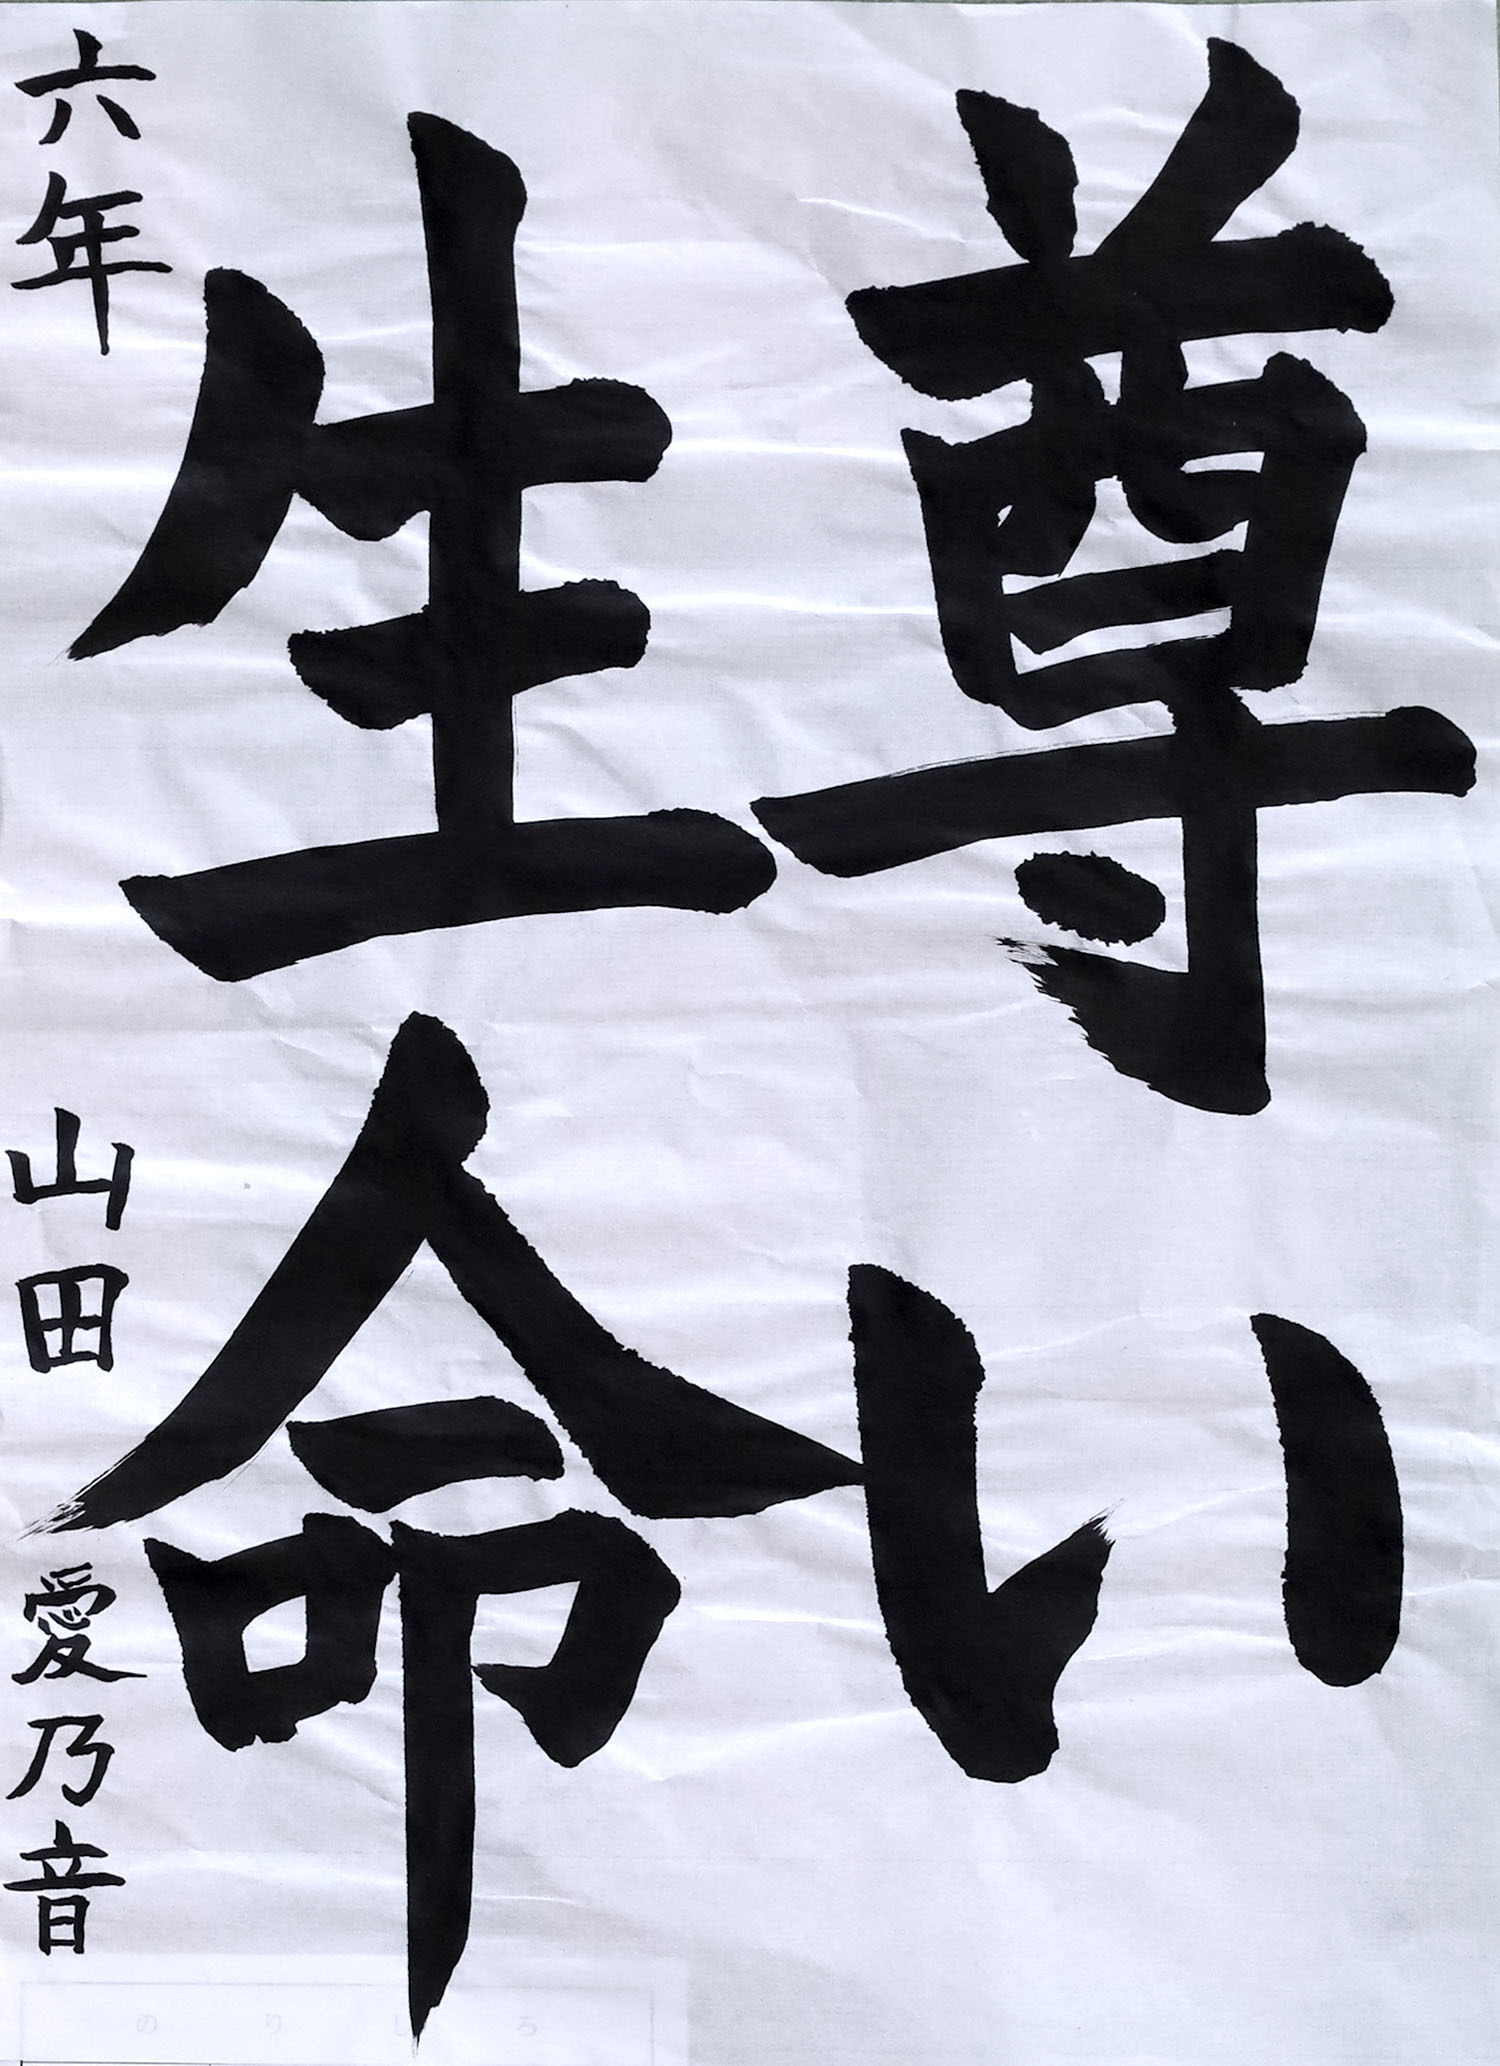 尊い
生命
六年 山田 愛乃音
のりしろ